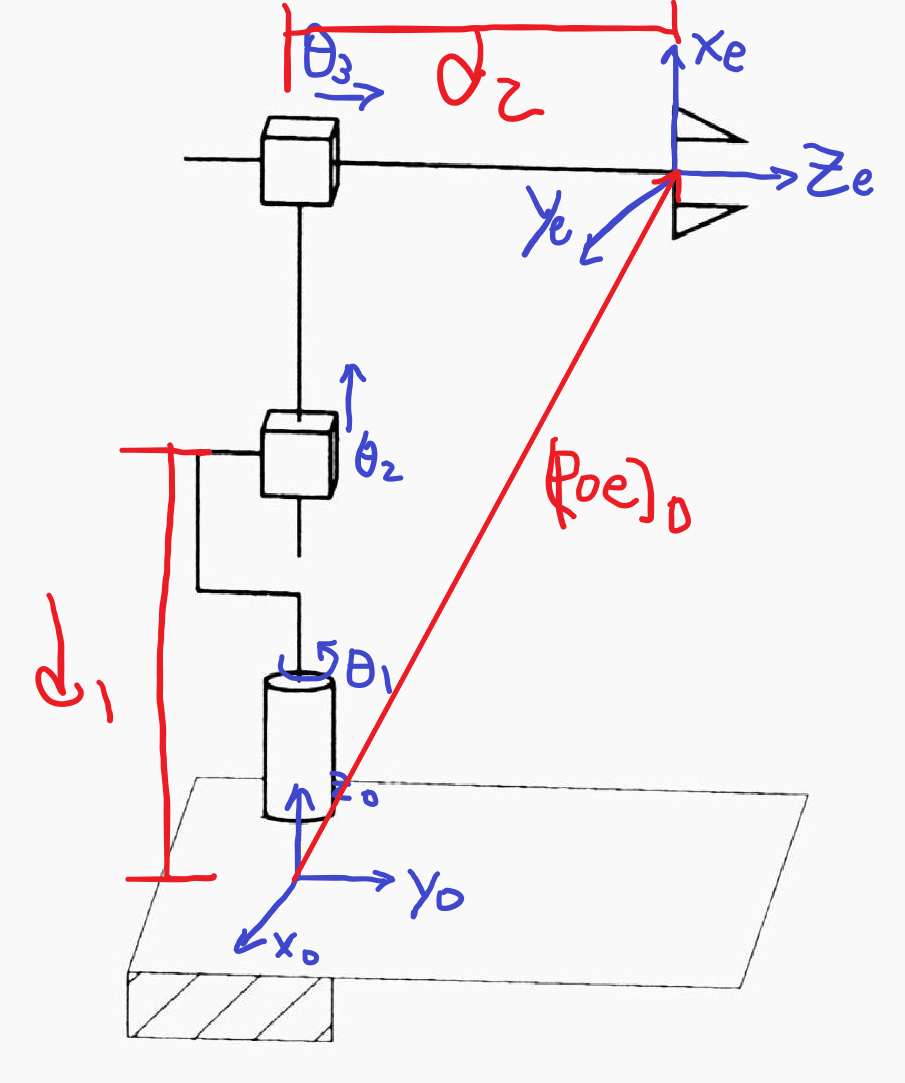 θ₃
d₂
xₑ
zₑ
yₑ
θ₂
[Poe]₀
d₁
θ₁
z₀
y₀
x₀